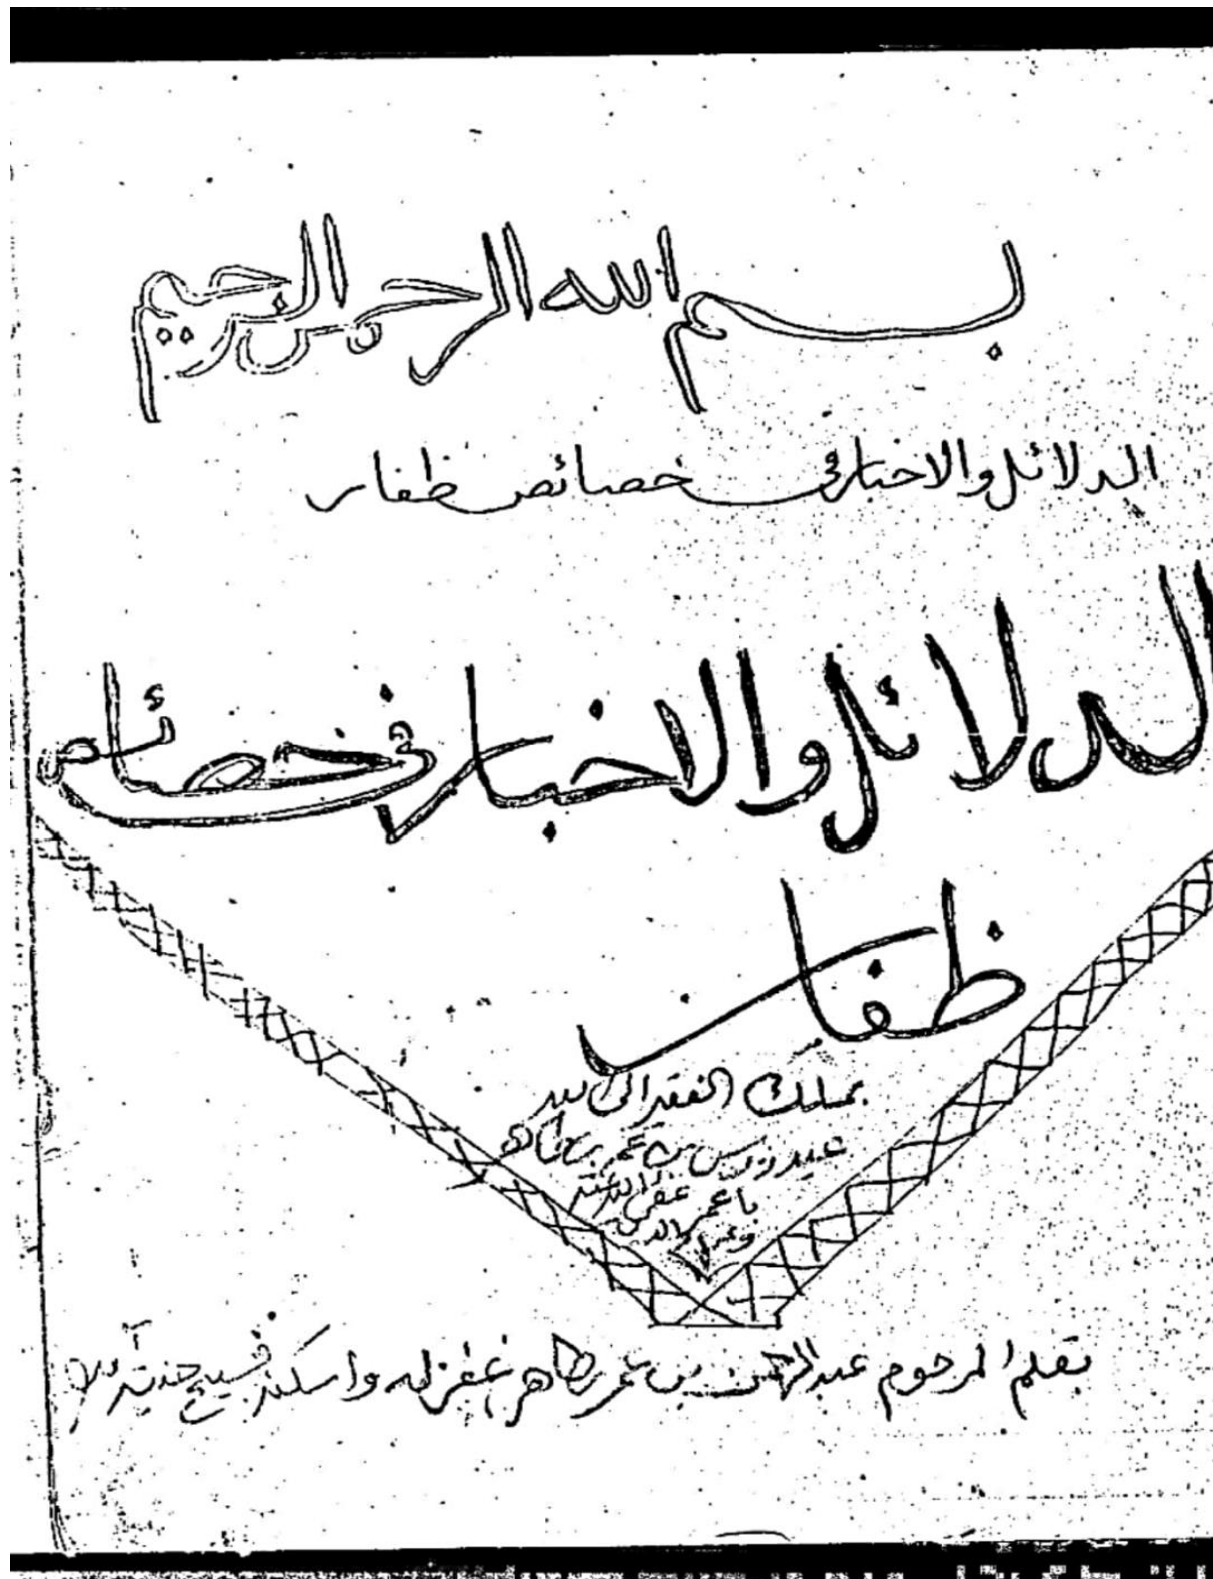 بسم الله الرحمن الرحيم
الدلائل والاخبار في خصائص ظفار
الدلائل والاخبار في خصائص
ظفار
بملك الفقير الى الله
عيدروس بن عمر بن طاهر
باعمر غفر الله عنه
بقلم المرحوم عبدالرحمن بن عمر طاهر غفر له واسكنه فسيح جنته